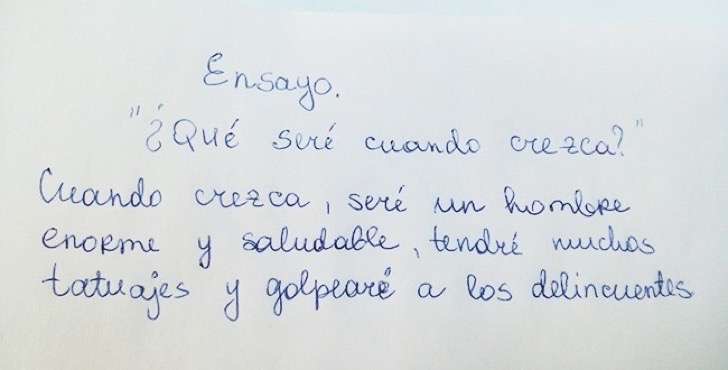 Ensayo.
"¿Qué seré cuando crezca?"
Cuando crezca, seré un hombre
enorme y saludable, tendré muchos
tatuajes y golpearé a los delincuentes